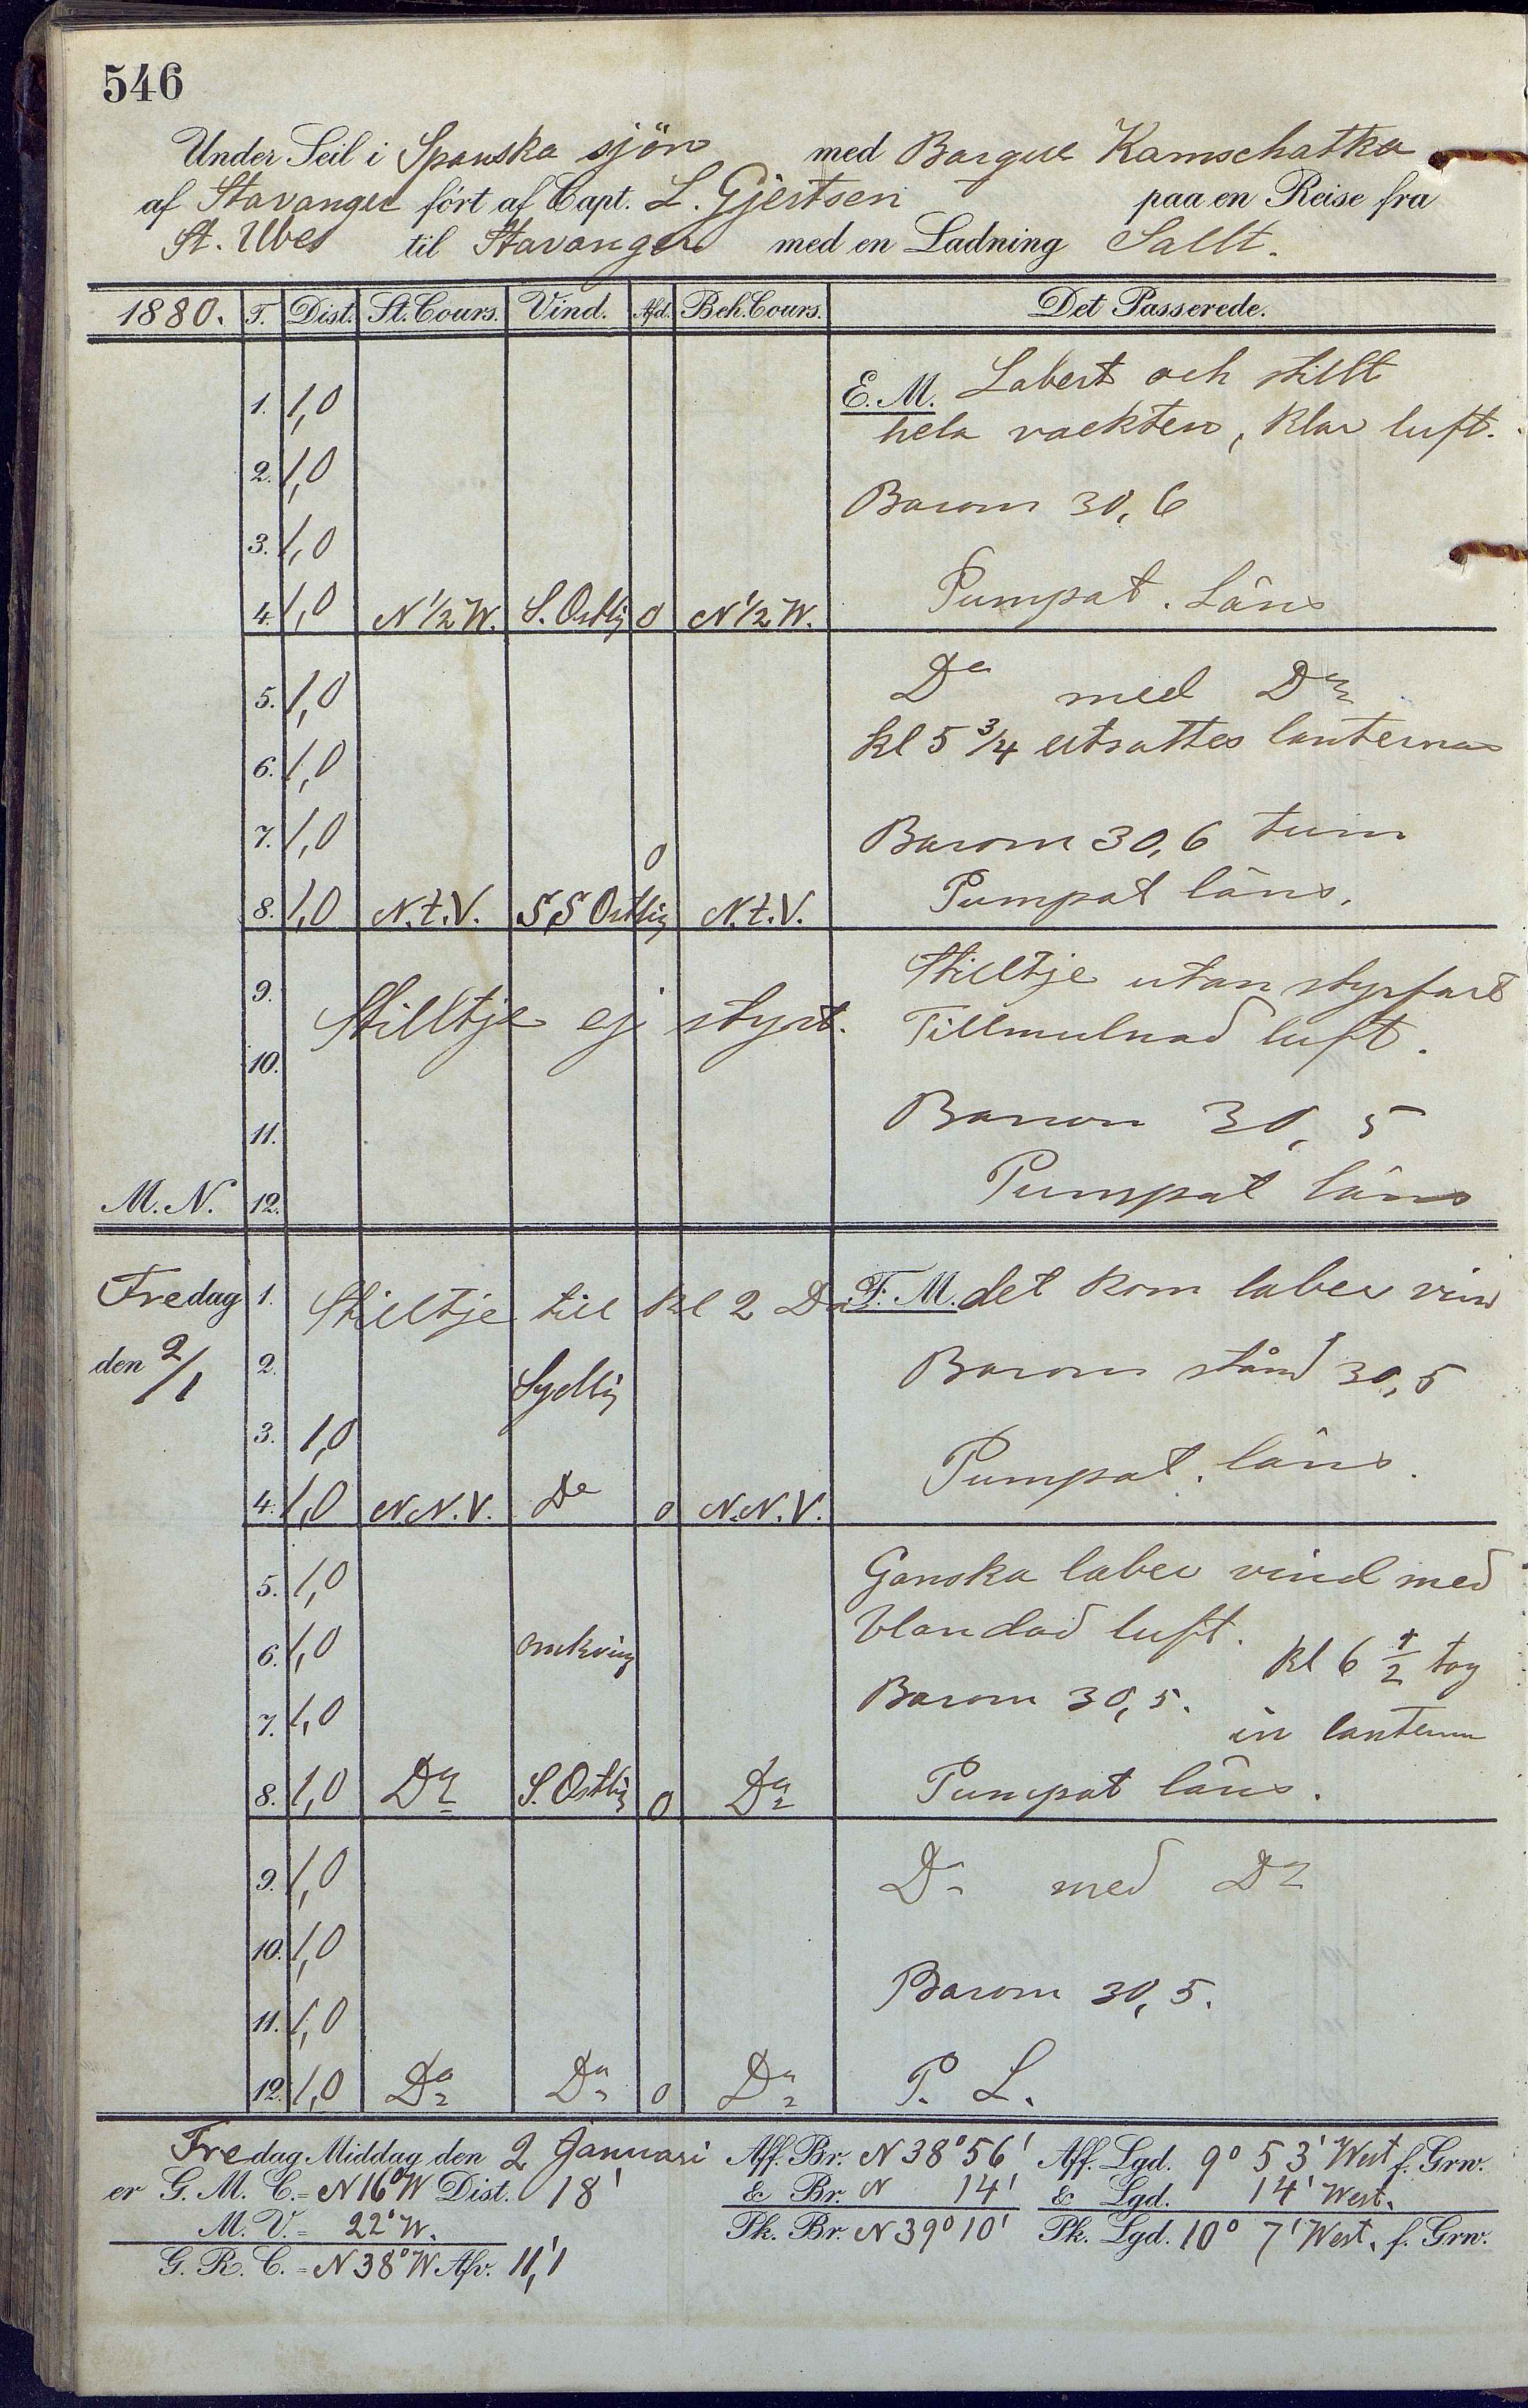 546
Under Seil i Spanska sjön med Barque Kamschatka
af Stavanger ført af Capt. L. Gjertsen paa en Reise fra
St. Ubes til Stavanger med en Ladning Sallt.
1880. T. Dist. St. Cours. Vind. Afd. Beh. Cours. Det Passerede.
E. M. Labert och stillt
1. 1,0
hela vackten, klar luft.
2. 1,0
Barom 30,6
3. 1,0
4. 1,0 N 1/2 W. S. Ostlig 0 N 1/2 W. Pumpat. Läns
5. 1,0 Do med Do
kl 5 3/4 utsattes lanternor
6. 1,0
7. 1,0 0 Barom 30,6 tum
8. 1,0 N.t.V. S S Ostlig N.t.V. Pumpat läns.
9. Stilltje utan styrfart
Stilltje ej styrt. Tillmulnad luft.
10.
11. Barom 30,5
M. N. 12. Pumpat läns
Fredag 1. Stilltje till kl 2 Do F. M. det kom laber vind
den 2/1 2. Sydlig Barom stånd 30,5
3. 1,0
4. 1,0 N.N.V. Do 0 N.N.V. Pumpat. läns.
5. 1,0 Ganska laber vind med
6. 1,0 omkring blandad luft. kl 6 1/2 tog
7. 1,0 Barom 30,5. in lantern
8. 1,0 Do S. Ostlig 0 Do Pumpat läns.
9. 1,0 Do med Do
10. 1,0
Barom 30,5.
11. 1,0
12. 1,0 Do Do 0 Do P. L.
Fredag Middag den 2 Januari Aff. Br. N 38° 56' Aff. Lgd. 9° 53' West f. Grw.
er G. M. C. = N 16° W Dist. 18' & Br. N 14' & Lgd. 14' West.
M. V. = 22° W. Pk. Br. N 39° 10' Pk. Lgd. 10° 7' West. f. Grw.
G. R. C. = N 38° W Afv. 11,'1